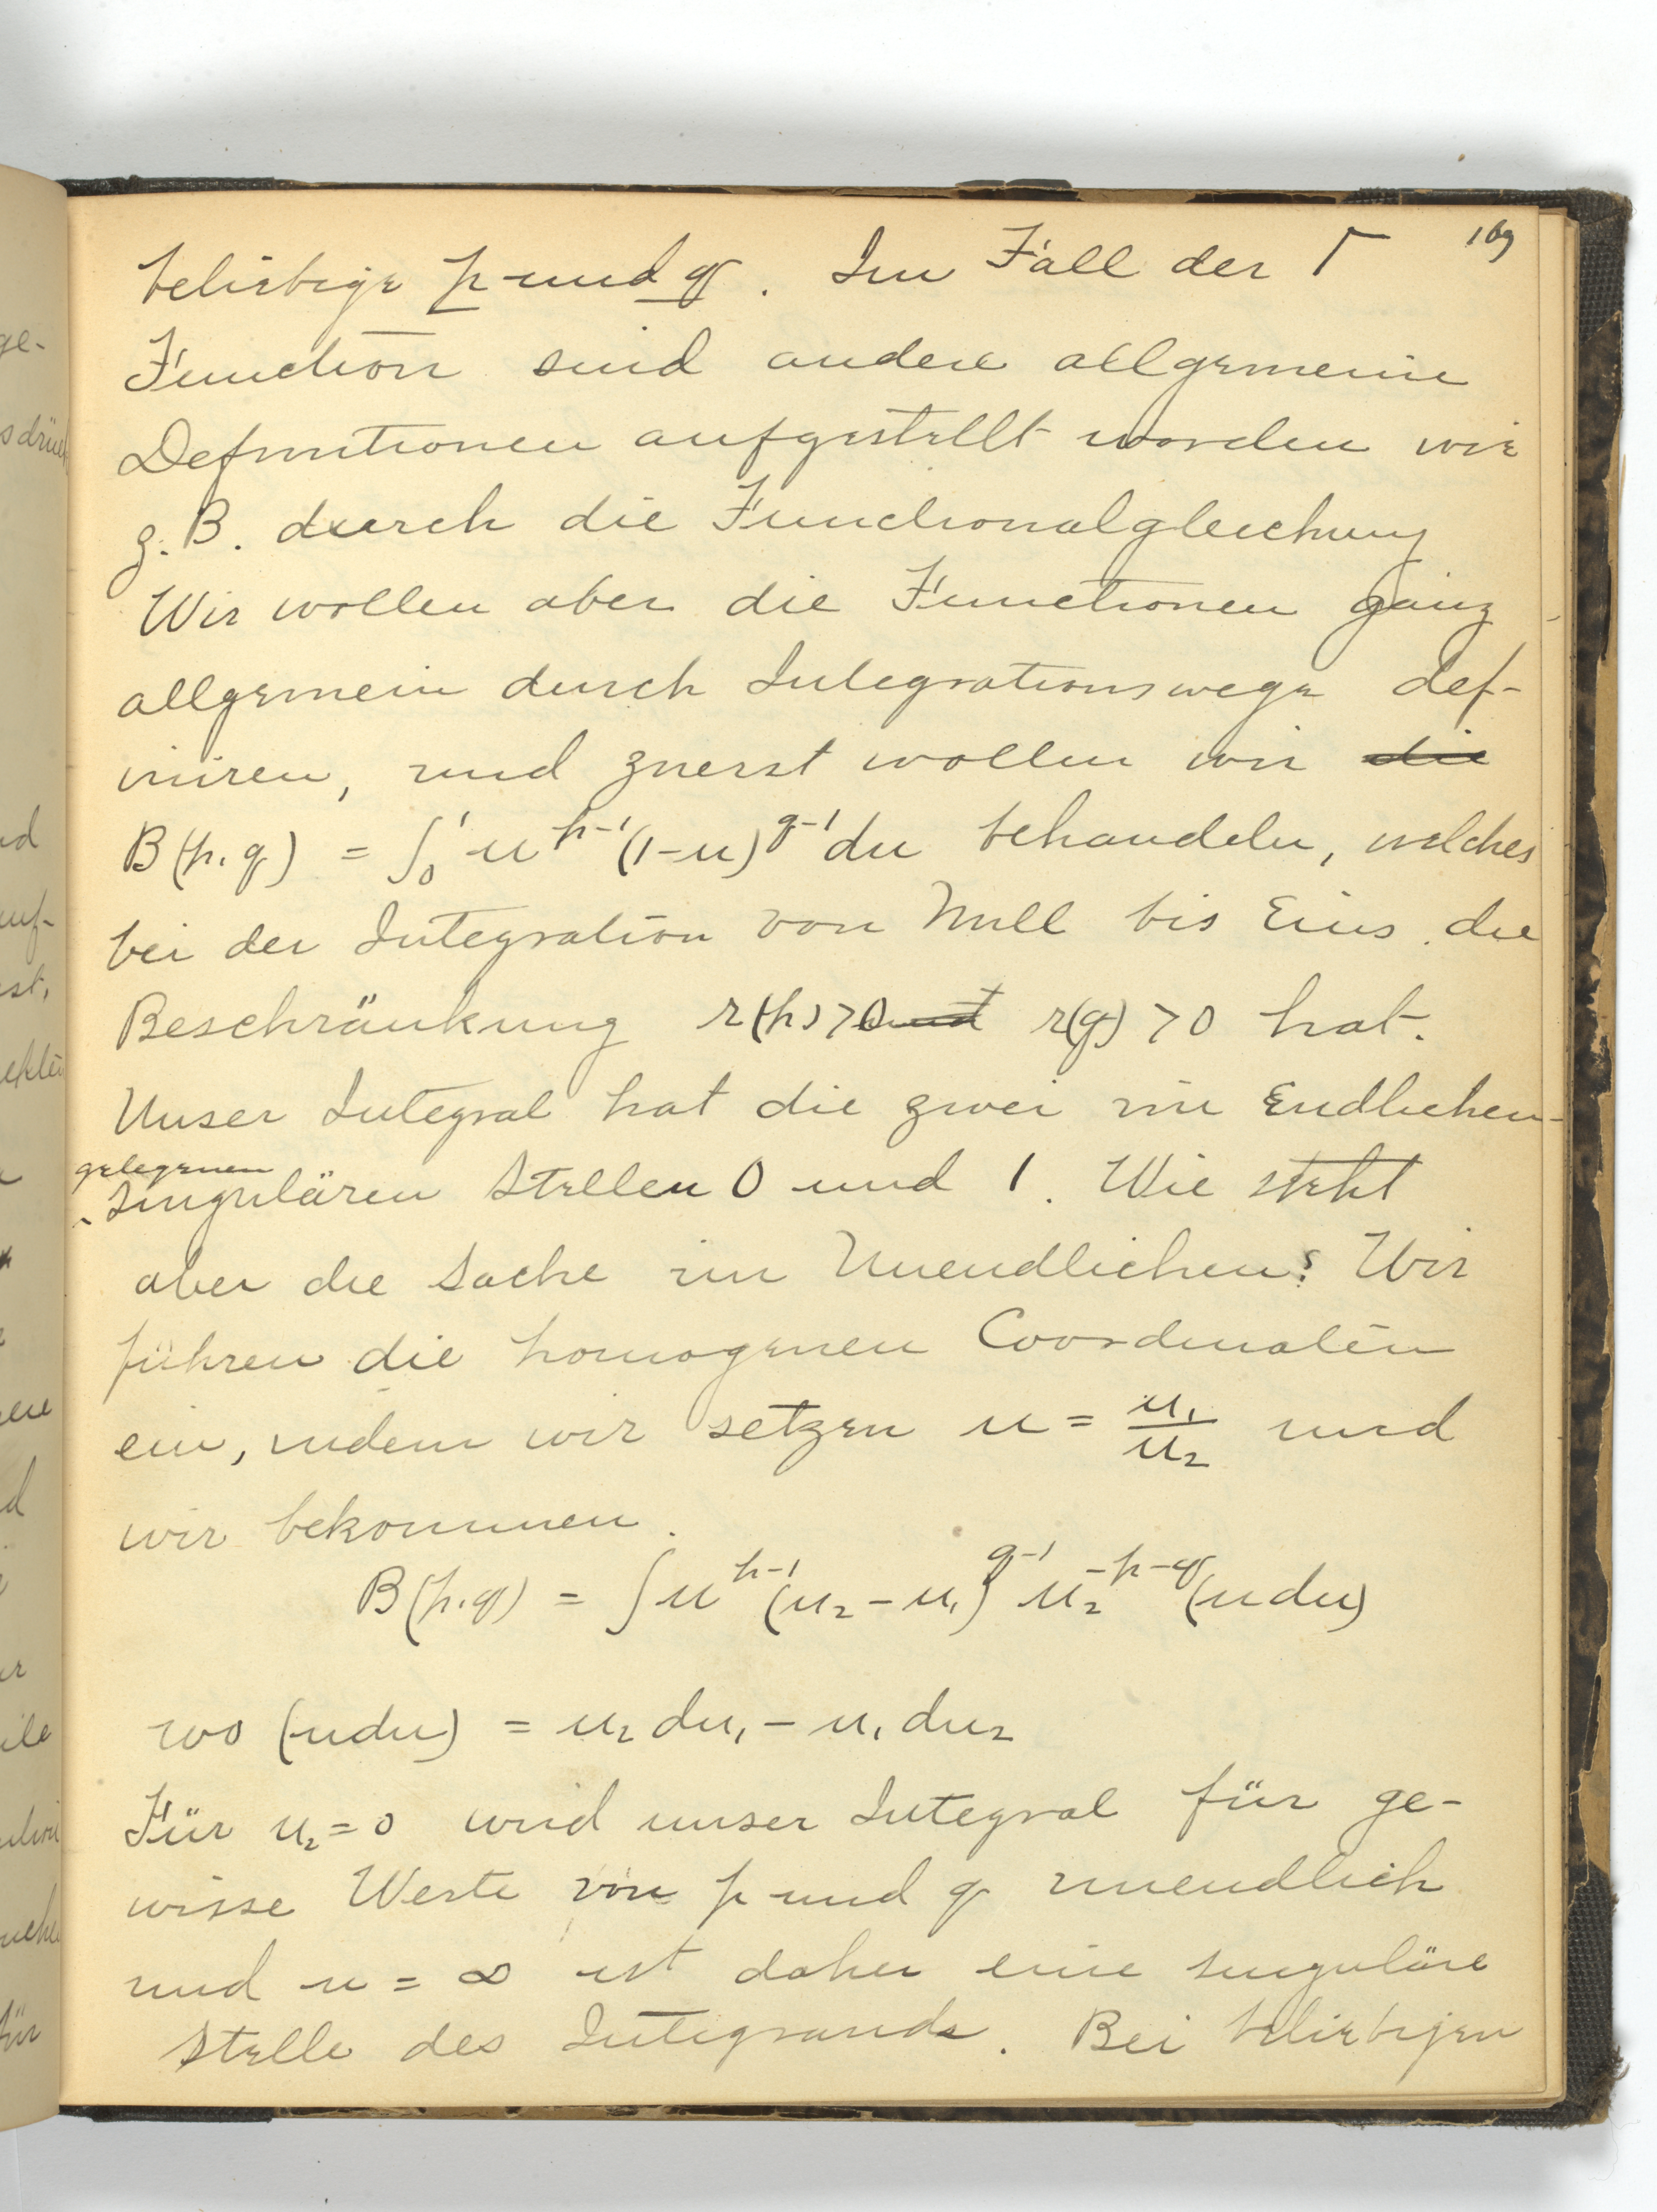 169
beliebige p und q. Im Fall der Γ
Function sind andere allgemeine
Definitionen aufgestellt worden wie
z. B. durch die Functionalgleichung
Wir wollen aber die Functionen ganz
allgemein durch Integrationswege def-
iniren, und zuerst wollen wir die
B(p,q) = ∫₀¹ u^{p-1}(1-u)^{q-1} du behandeln, welches
bei der Integration von Null bis Eins die
Beschränkung r(p) > 0 und r(q) > 0 hat.
Unser Integral hat die zwei im Endlichen
gelegenen
singulären Stellen 0 und 1. Wie steht
aber die Sache im Unendlichen? Wir
führen die homogenen Coordinaten
ein, indem wir setzen u = u₁/u₂ und
wir bekommen.
B(p,q) = ∫ u^{p-1}(u₂-u₁)^{q-1} u₂^{-p-q}(u du)
wo (u du) = u₂ du₁ - u₁ du₂
Für u₂ = 0 wird unser Integral für ge-
wisse Werte von p und q unendlich
und u = ∞ ist daher eine singuläre
Stelle des Integrands. Bei beliebigen